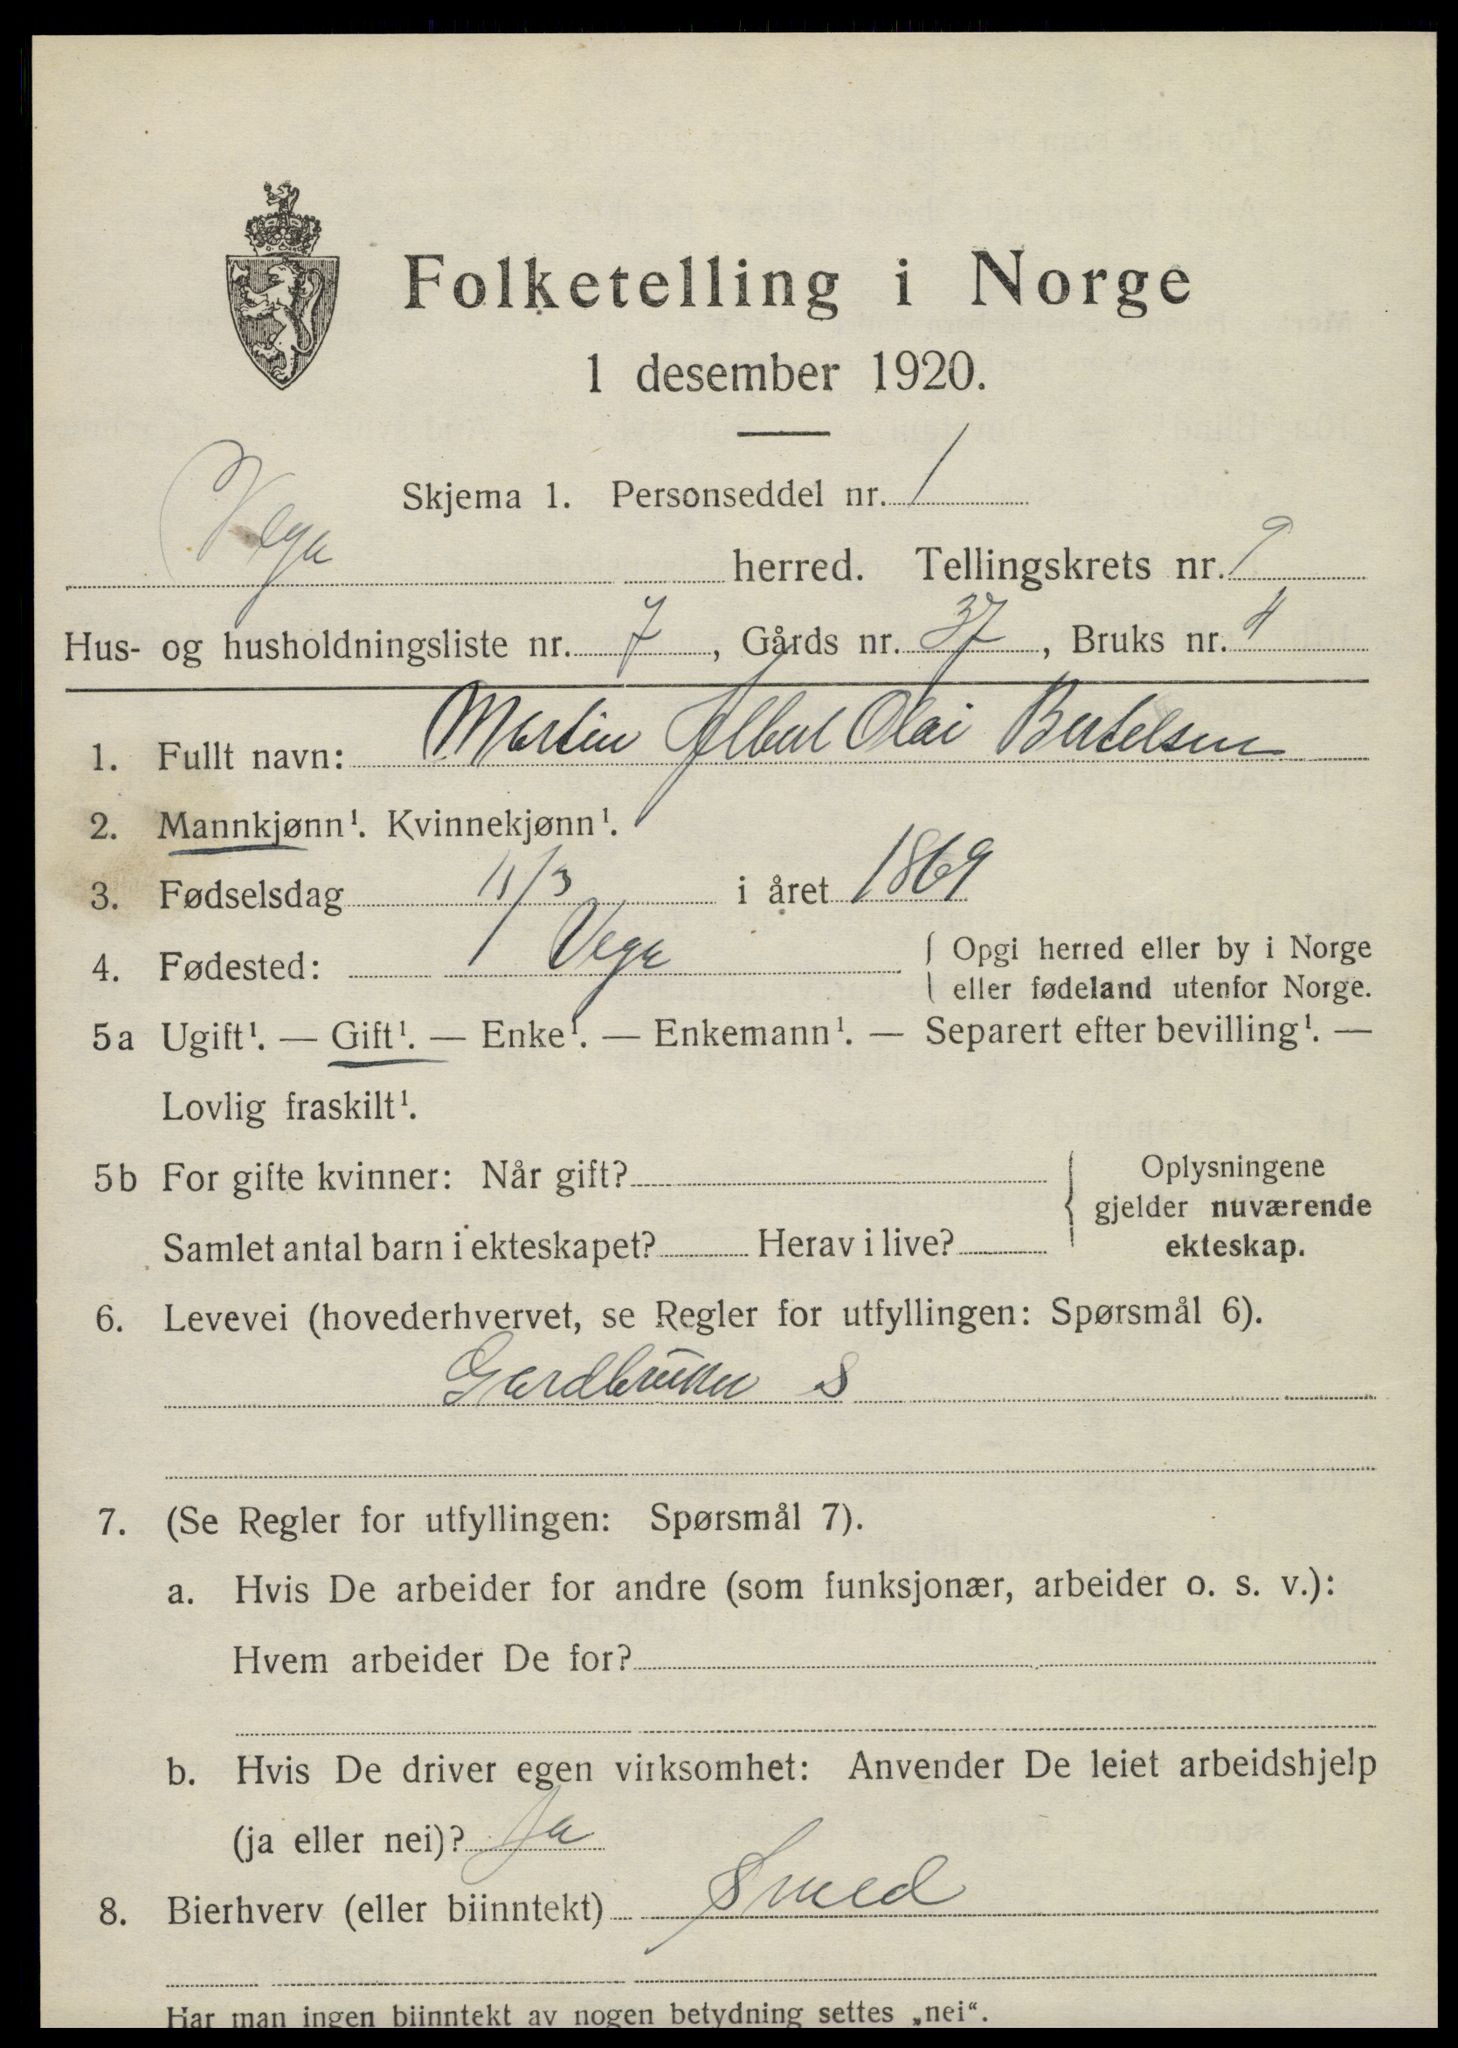 Folketelling i Norge
1 desember 1920.
Skjema 1. Personseddel nr. 1
Vega herred. Tellingskrets nr. 9
Hus- og husholdningsliste nr. 7, Gårds nr. 37, Bruks nr. 4
1. Fullt navn: Martin Albert Olai Bertelsen
2. Mannkjønn¹. Kvinnekjønn¹.
3. Fødselsdag 11/3 i året 1869
4. Fødested: Vega { Opgi herred eller by i Norge
eller fødeland utenfor Norge.
5a Ugift¹. — Gift¹. — Enke¹. — Enkemann¹. — Separert efter bevilling¹. —
Lovlig fraskilt¹.
5b For gifte kvinner: Når gift? { Oplysningene
gjelder nuværende
Samlet antal barn i ekteskapet? Herav i live? ekteskap.
6. Levevei (hovederhvervet, se Regler for utfyllingen: Spørsmål 6).
Gardbruker S
7. (Se Regler for utfyllingen: Spørsmål 7).
a. Hvis De arbeider for andre (som funksjonær, arbeider o. s. v.):
Hvem arbeider De for?
b. Hvis De driver egen virksomhet: Anvender De leiet arbeidshjelp
(ja eller nei)? Ja
8. Bierhverv (eller biinntekt) Smed
Har man ingen biinntekt av nogen betydning settes „nei“.